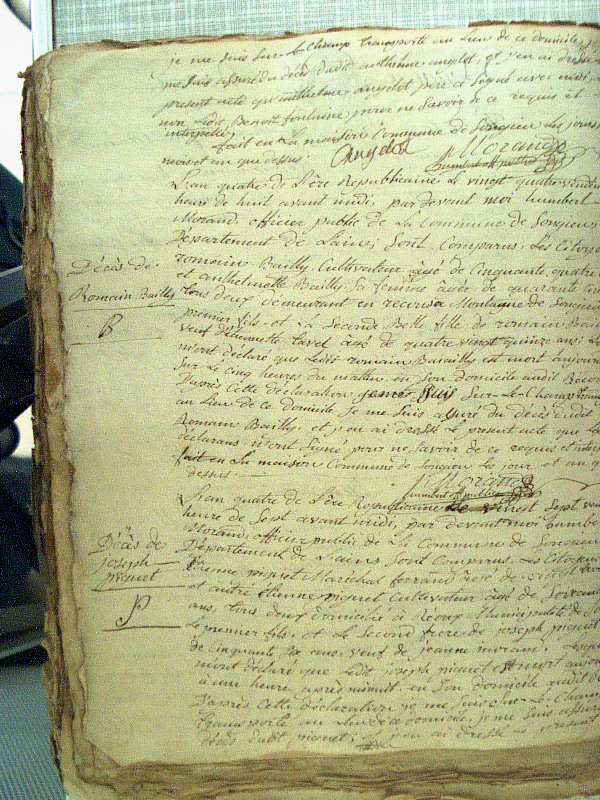 je me suis sur le Champ transporté au Lieu de ce domicile, je
me suis assuré du décès dudit anthelme angelot, et j'en ai dressé
présent acte qu'anthelme angelot père a signé avec moi,
non Ledit Benoit fontaine, pour ne savoir de ce requis et
interpellé
fait en La maison Commune de Songieu Les jours
mois et an que dessus.
Angelot
Morand
L'an quatre de L'Ere Republicaine Le vingt quatre
heure de huit avant midi, par devant moi humbert
Morand, officier public de La Commune de Songieu,
Département de L'ain, sont Comparus, Les Citoyens
romain Bailly Cultivateur âgé de Cinquante quatre
et anthelmette Bailly sa femme âgée de quarante
tous deux demeurant en
premier fils et La seconde Belle fille de romain Bailly
veuf âgé de quatre vingt quinze ans
m'ont déclaré que Ledit romain Bailly est mort aujour
sur Le cinq heures du matin en son domicile audit
D'après Cette déclaration je me suis sur-Le-Champ
au Lieu de ce domicile je me suis assuré du Décès dudit
Romain Bailly, et j'en ai dressé Le présent acte que Les
déclarans n'ont signé pour ne savoir de ce requis et
fait en La maison Commune de Songieu Les jour et an que
dessus
Morand
Décès de
Romain Bailly
L'an quatre de L'Ere Republicaine Le vingt Sept
heure de Sept avant midi, par devant moi humbert
Morand, officier public de La Commune de Songieu
Département de L'ain Sont Comparus, Les Citoyens
Etienne piquet Maréchal ferrand âgé de
et autre Etienne piquet Cultivateur âgé de Soixante
ans, tous deux domicilié à
Le premier fils, et Le Second frère de joseph piquet
de Cinquante ans, veuf de jeanne
m'ont déclaré que Ledit joseph piquet est mort
à une heure après minuit en Son domicile audit
D'après Cette déclaration je me suis sur-Le-Champ
transporté au Lieu de ce domicile, je me suis assuré
décès dudit piquet, et j'en ai dressé Le présent
Décès de
joseph
piquet